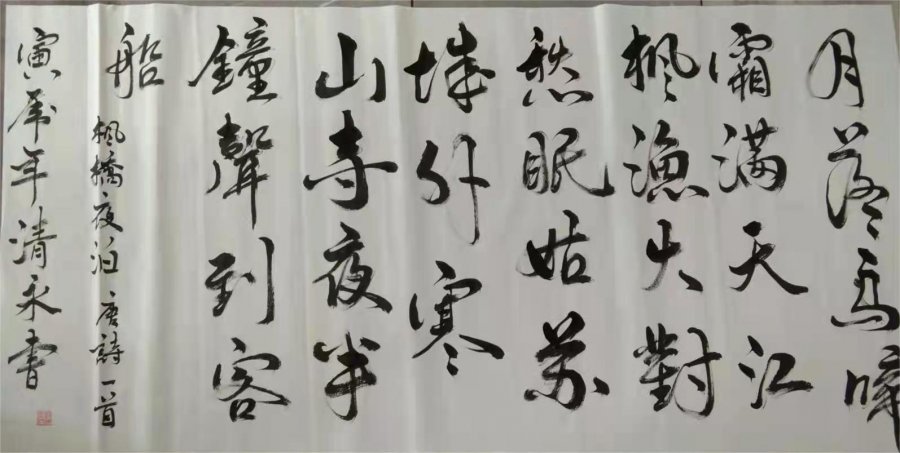 月落烏啼
霜满天江
枫漁火對
愁眠姑苏
城外寒
山寺夜半
鐘聲到客
船
楓橋夜泊 唐詩一首
寅虎年清永書